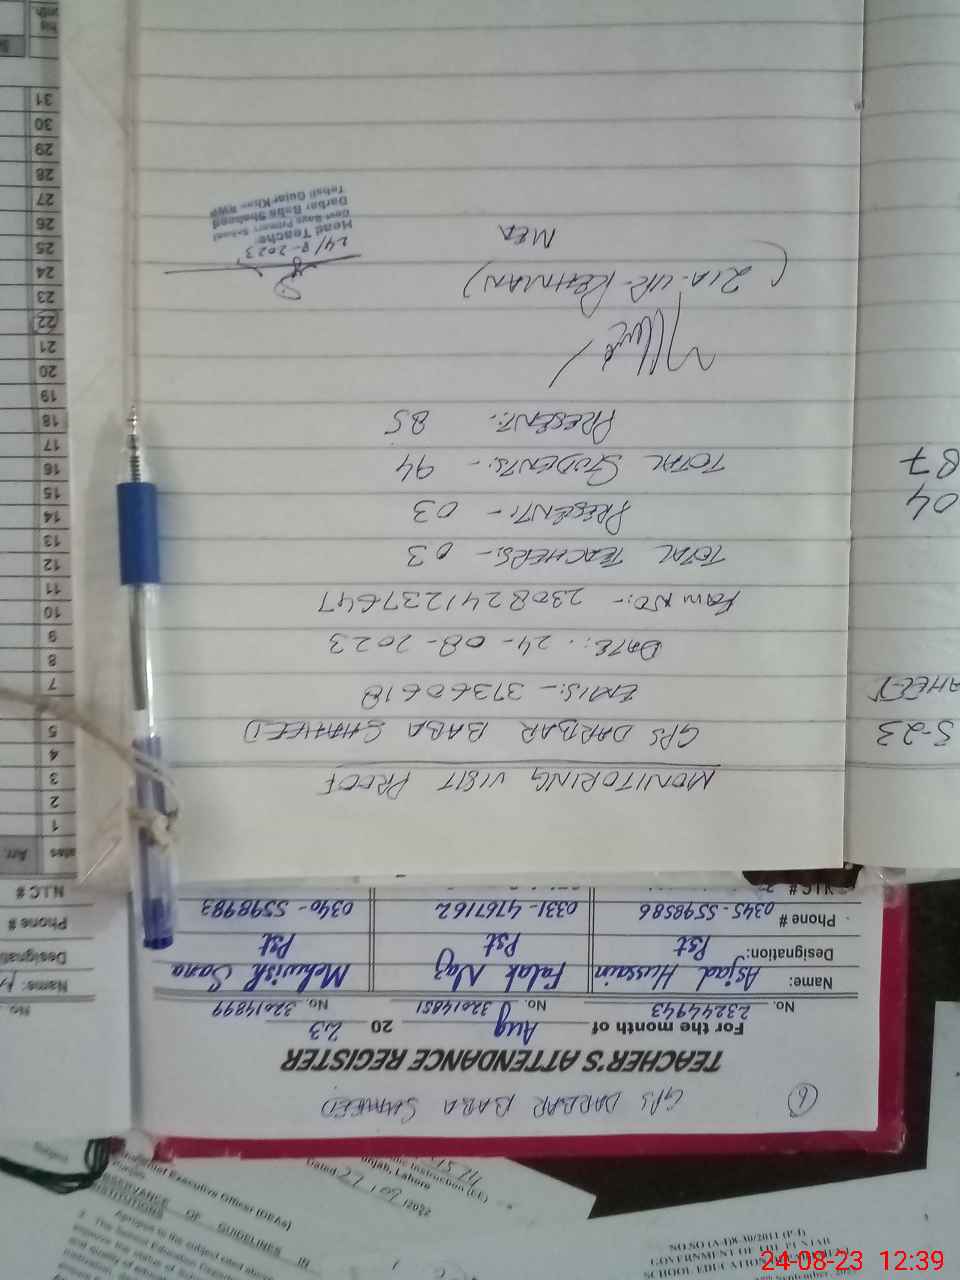 MONITORING VISIT PROOF
GPS DARBAR BABA SHAHEED
EMIS:- 37360618
DATE:. 24-08-2023
Form NO:- 2308241237647
TOTAL TEACHERS:- 03
PRESENT:- 03
TOTAL STUDENTS:- 94
PRESENT:- 85
(ZIA-UR-REHMAN)
MEA
24/8-2023
Head Teacher
Govt Boys Primary School
Darbar Baba Shaheed
Tehsil Gujar Khan RWP
S-23
AHEED
04
87
6
GPS DARBAR BABA SHAHEED
TEACHER'S ATTENDANCE REGISTER
For the month of Aug 20 23
No. 23244943 No. 32014851 No. 32014899
Name: Asjad Hussain Falak Naz Mehwish Sana
Designation: Pst Pst Pst
Phone # 0345-5598586 0331-4767162 0340-5598983
N.I.C #
No.
Name:
Designation
Phone #
N.I.C #
ates Arr.
1
2
3
4
5
6
7
8
9
10
11
12
13
14
15
16
17
18
19
20
21
22
23
24
25
26
27
28
29
30
31
NO.SO (A-I)8-30/2011 (P-I)
GOVERNMENT OF THE PUNJAB
SCHOOL EDUCATION
September, 20
Executive Officer (DEAs)
OF GUIDELINES
Subject
Dated
unjab, Lahore
Instruction (EE)
24-08-23 12:39